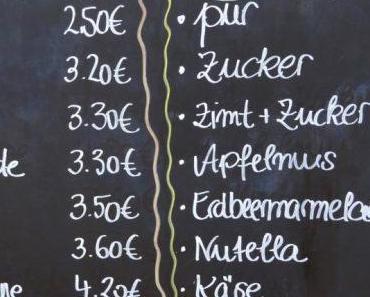 2.50€ • pur
3.20€ • Zucker
3.30€ • Zimt + Zucker
de 3.30€ • Apfelmus
3.50€ • Erdbeermarmela
3.60€ • Nutella
ne 4.20€ • Käse